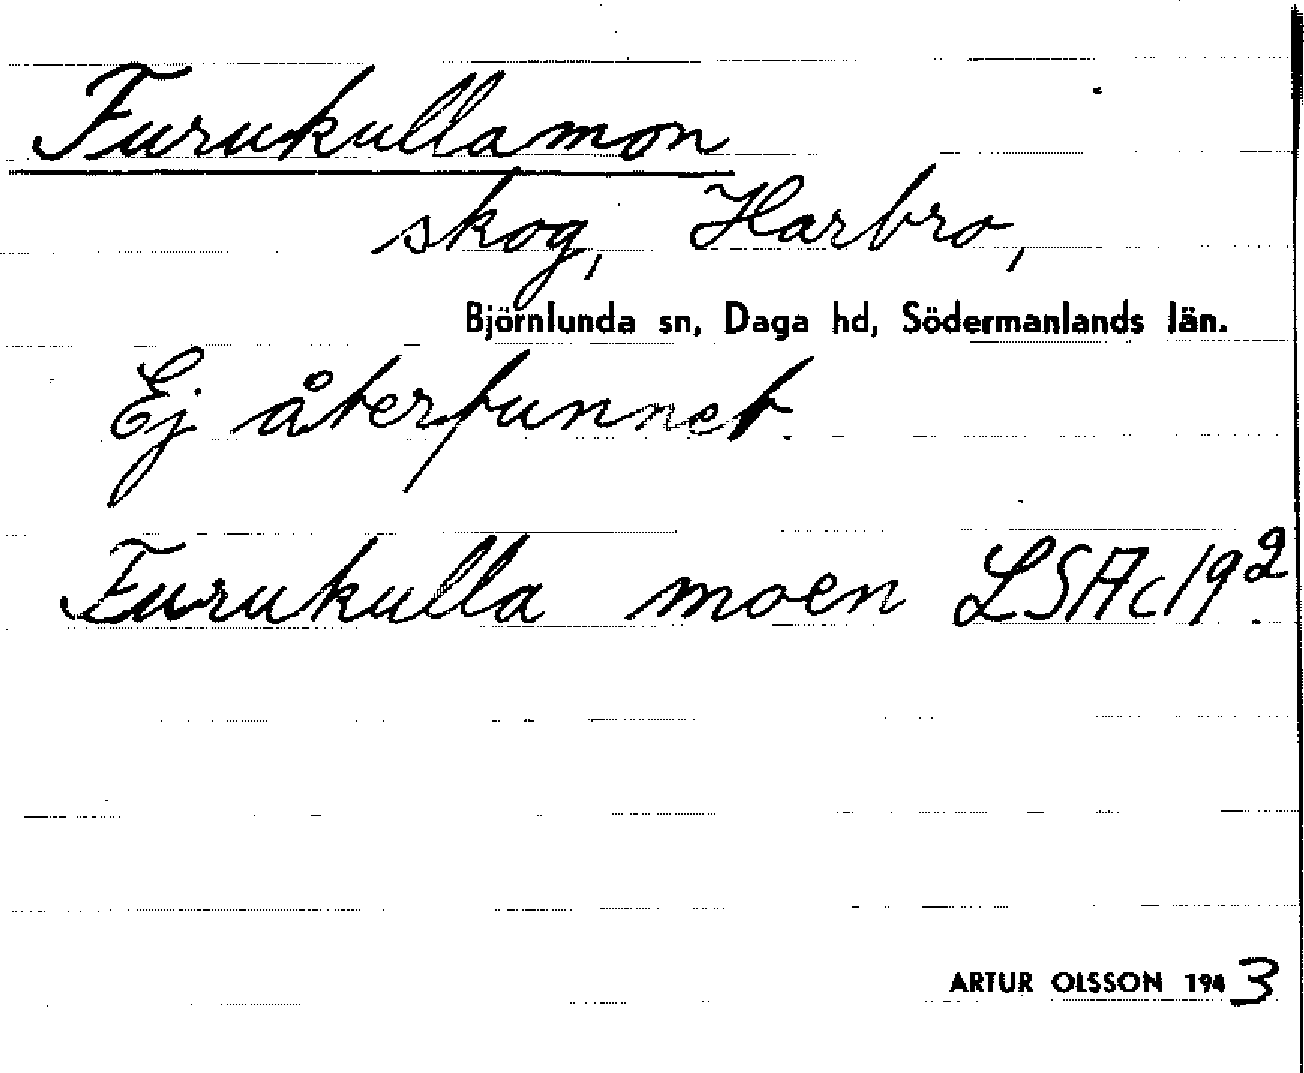 Furukullamon
skog, Harbro,
Björnlunda sn, Daga hd, Södermanlands län.
Ej återfunnet.
Furukulla moen LSAc19².
ARTUR OLSSON 1943